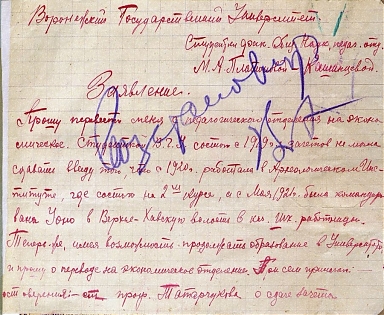 Воронежский Государственный Университет.
Студентки фак. Общ. Наук, педаг. отд.
М. А. Платицкой - Кашанцевой.
Заявление.
Прошу перевести меня с педагогического отделения на эконо-
мическое. Студенткой В.Г.У. состою с 1919 г. зачетов не мог
сдавать ввиду того, что с 1920 г. работала в Археологическом Инс-
титуте, где состою на 2ом курсе, а с Мая 1921 г. была командиро-
вана Уоно в Верхне-Хавскую волость в кач. шк. работницы.
Теперь-же, имея возможность продолжать образование в Университете
и прошу о переводе на экономическое отделение. При сем прилагаю
ост оверения: проф. Татарчукова о сдаче зачета